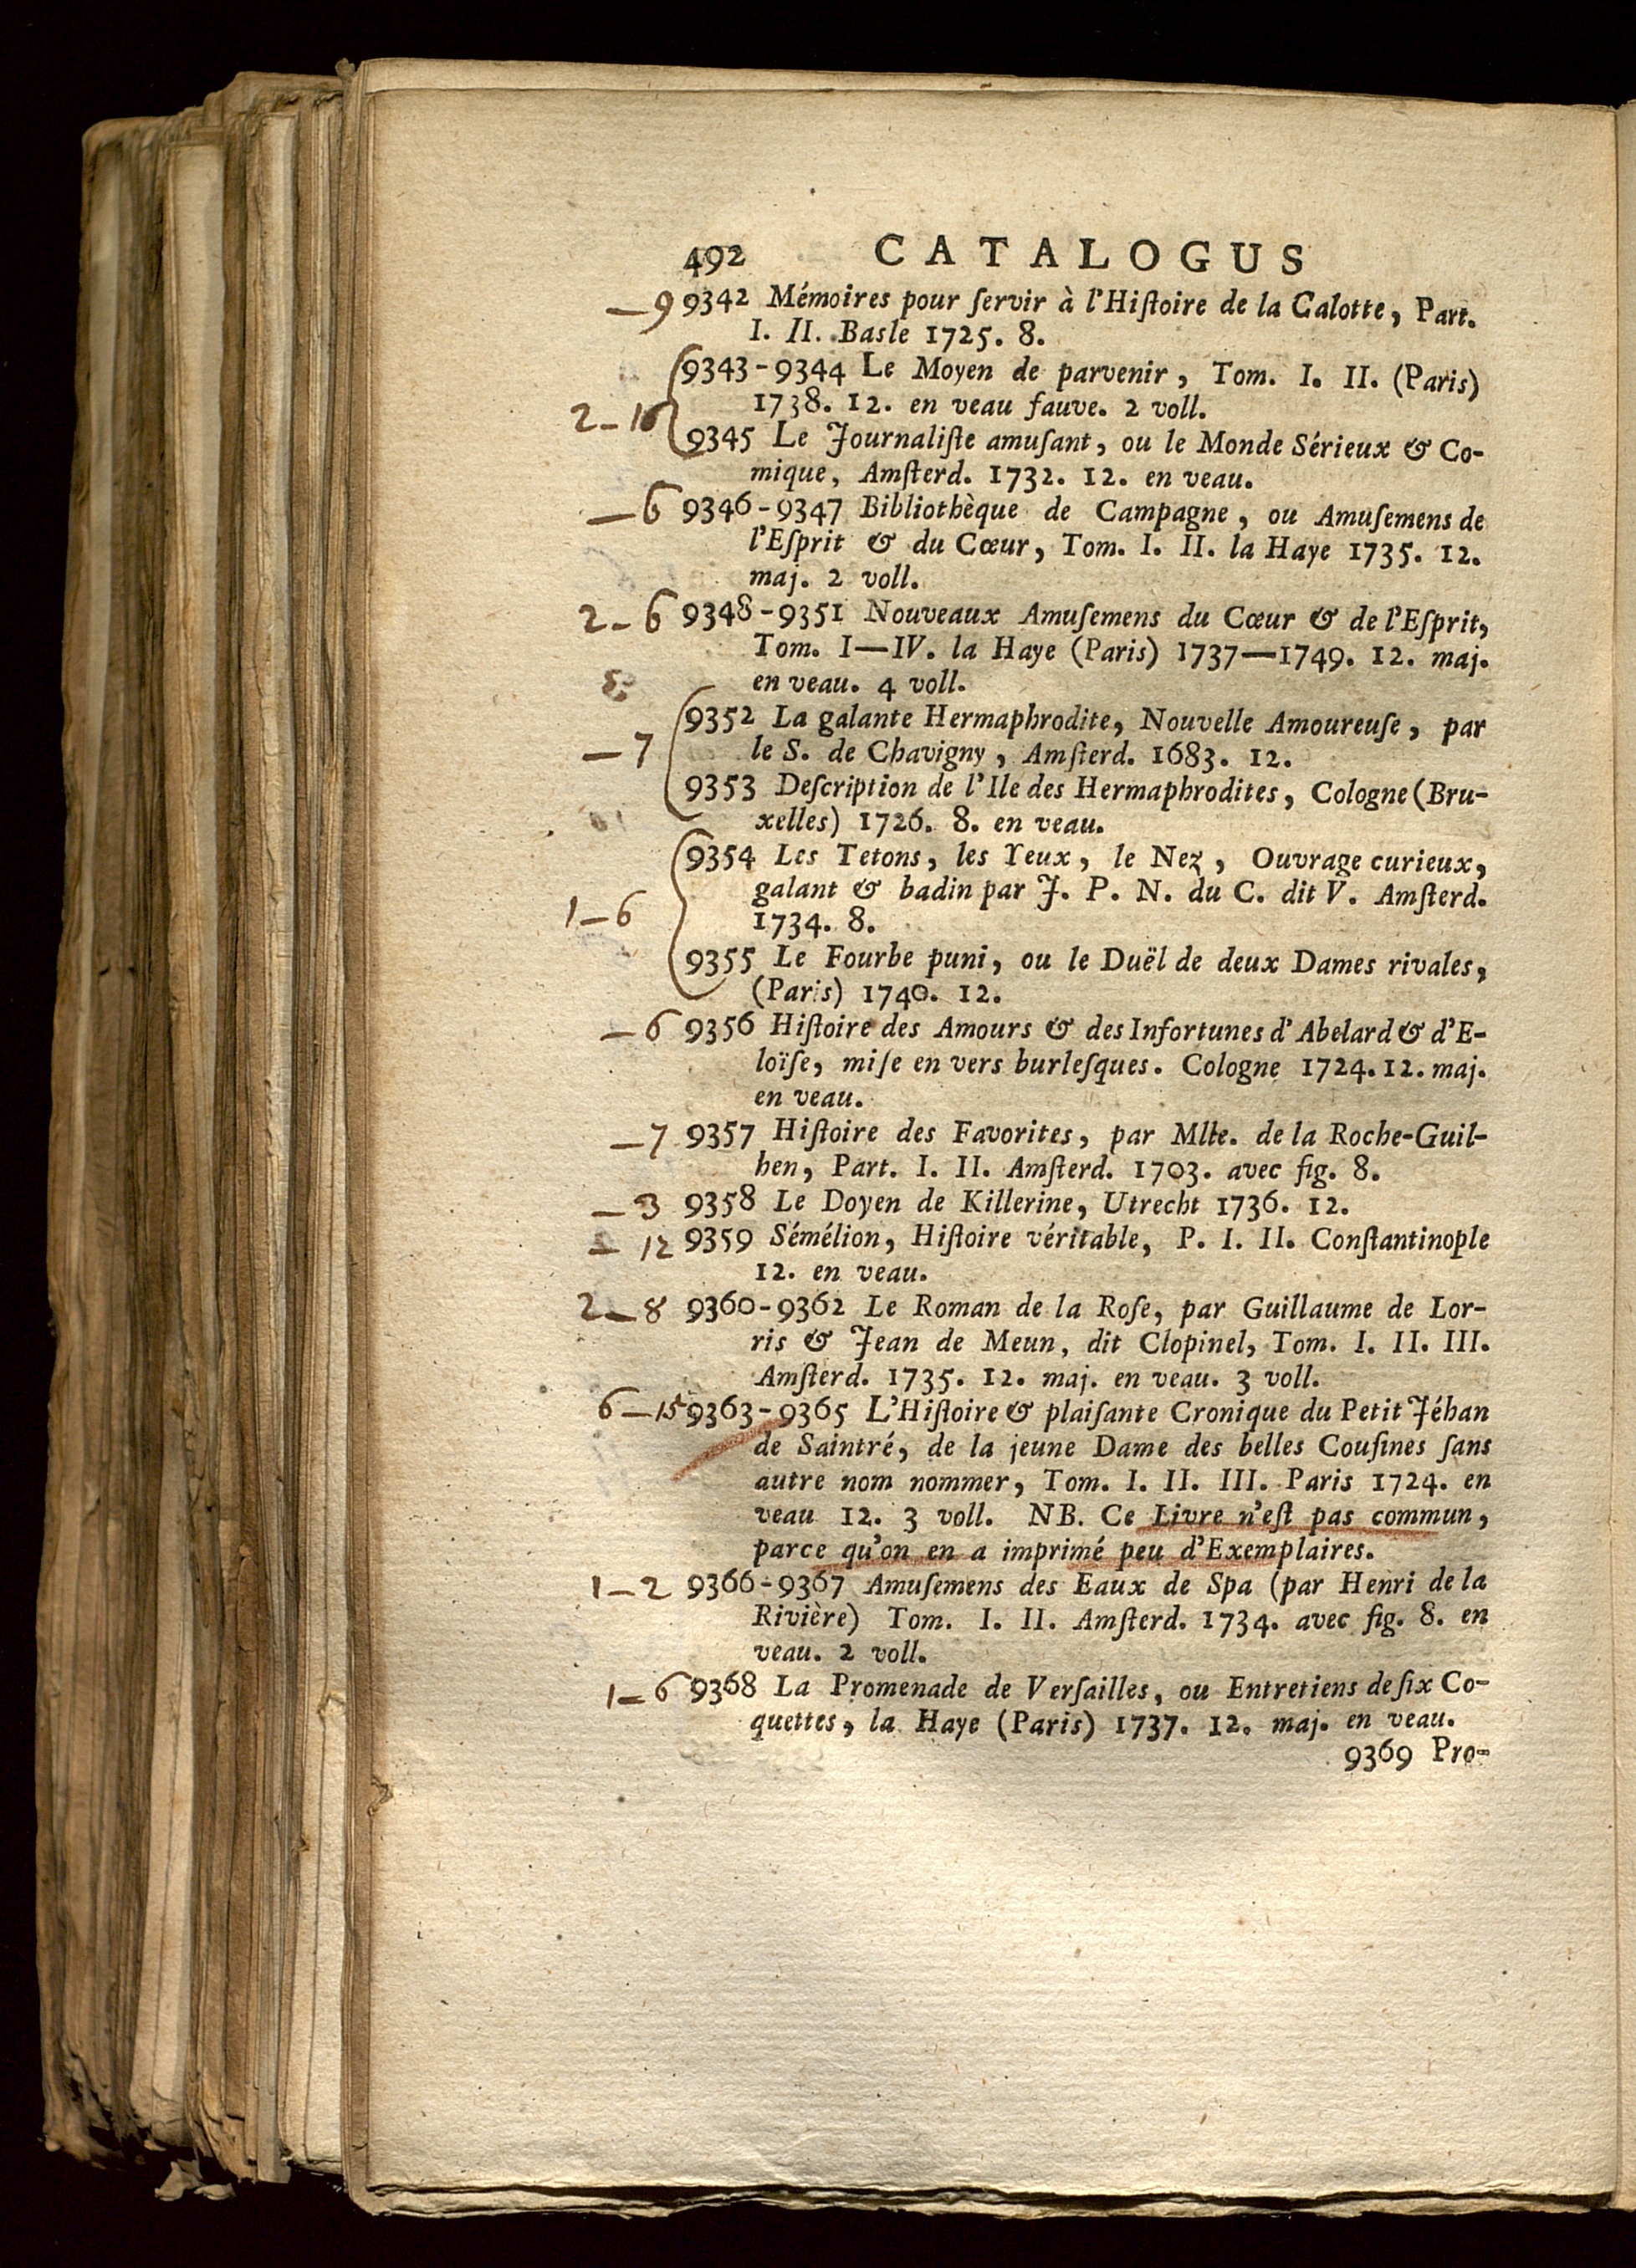 492 CATALOGUS
—9 9342 Mémoires pour ſervir à l'Hiſtoire de la Calotte, Part.
I. II. Basle 1725. 8.
9343-9344 Le Moyen de parvenir, Tom. I. II. (Paris)
1738. 12. en veau fauve. 2 voll.
2–
9345 Le Journaliſte amuſant, ou le Monde Sérieux & Co-
mique, Amſterd. 1732. 12. en veau.
—6 9346-9347 Bibliothèque de Campagne, ou Amuſemens de
l'Eſprit & du Cœur, Tom. I. II. la Haye 1735. 12.
maj. 2 voll.
2–6 9348-9351 Nouveaux Amuſemens du Cœur & de l'Eſprit,
Tom. I—IV. la Haye (Paris) 1737—1749. 12. maj.
en veau. 4 voll.
9352 La galante Hermaphrodite, Nouvelle Amoureuſe, par
—7 le S. de Chavigny, Amſterd. 1683. 12.
9353 Deſcription de l'Ile des Hermaphrodites, Cologne (Bru-
xelles) 1726. 8. en veau.
9354 Les Tetons, les Yeux, le Nez, Ouvrage curieux,
galant & badin par J. P. N. du C. dit V. Amſterd.
1–6 1734. 8.
9355 Le Fourbe puni, ou le Duël de deux Dames rivales,
(Paris) 1740. 12.
—6 9356 Hiſtoire des Amours & des Infortunes d'Abelard & d'E-
loïſe, miſe en vers burleſques. Cologne 1724. 12. maj.
en veau.
—7 9357 Hiſtoire des Favorites, par Mlle. de la Roche-Guil-
hen, Part. I. II. Amſterd. 1703. avec fig. 8.
—3 9358 Le Doyen de Killerine, Utrecht 1736. 12.
– 12 9359 Sémélion, Hiſtoire véritable, P. I. II. Conſtantinople
12. en veau.
2–8 9360-9362 Le Roman de la Roſe, par Guillaume de Lor-
ris & Jean de Meun, dit Clopinel, Tom. I. II. III.
Amſterd. 1735. 12. maj. en veau. 3 voll.
6–15 9363-9365 L'Hiſtoire & plaiſante Cronique du Petit Jéhan
de Saintré, de la jeune Dame des belles Couſines ſans
autre nom nommer, Tom. I. II. III. Paris 1724. en
veau 12. 3 voll. NB. Ce Livre n'eſt pas commun,
parce qu'on en a imprimé peu d'Exemplaires.
1–2 9366-9367 Amuſemens des Eaux de Spa (par Henri de la
Rivière) Tom. I. II. Amſterd. 1734. avec fig. 8. en
veau. 2 voll.
1–6 9368 La Promenade de Verſailles, ou Entretiens de ſix Co-
quettes, la Haye (Paris) 1737. 12. maj. en veau.
9369 Pro-